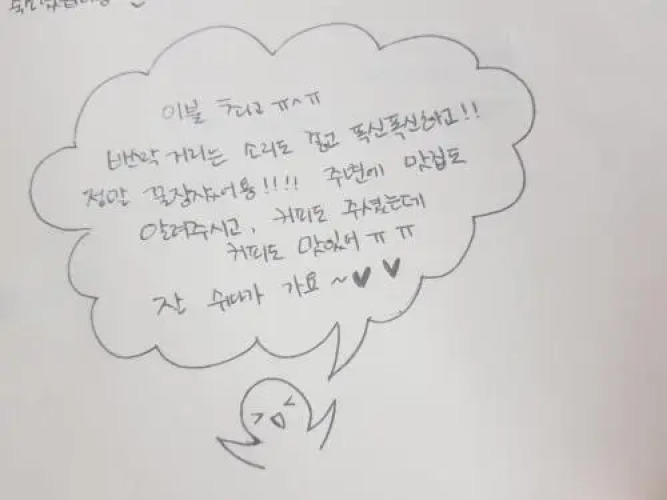 이불 최고 ㅠㅅㅠ
바스락 거리는 소리도 좋고 폭신폭신하고!!
정말 꿀잠잤어용!!!! 주변에 맛집도
알려주시고, 커피도 주셨는데
커피도 맛있어 ㅠㅠ
잘 쉬다가 가요 ~♥♥